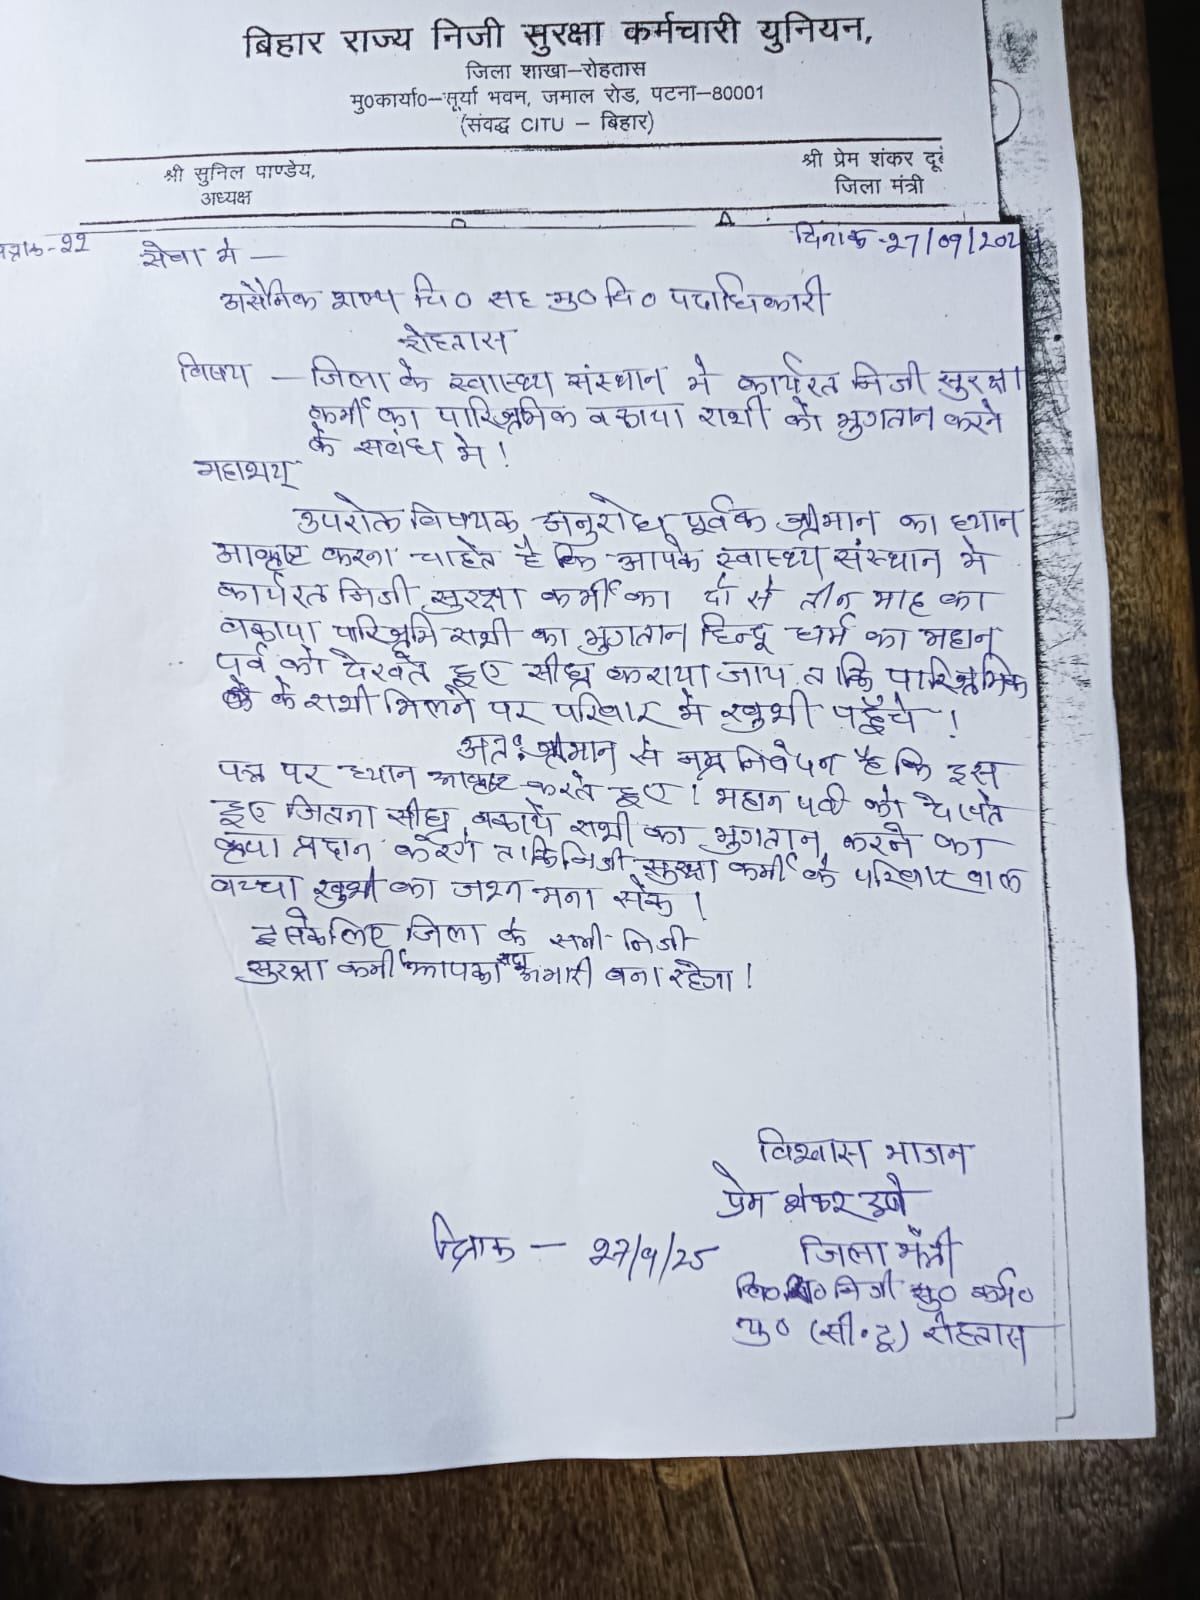 बिहार राज्य निजी सुरक्षा कर्मचारी युनियन,
जिला शाखा–रोहतास
मु0कार्या0–सूर्या भवन, जमाल रोड, पटना–80001
(संवद्ध CITU – बिहार)
श्री सुनिल पाण्डेय,
अध्यक्ष
श्री प्रेम शंकर दूबे
जिला मंत्री
पत्रांक-22
दिनांक-27/09/202
सेवा मे —
असैनिक शल्य चि० सह मु० चि० पदाधिकारी
रोहतास
विषय — जिला के स्वास्थ्य संस्थान मे कार्यरत निजी सुरक्षा
कर्मी का पारिश्रमिक वकाया राशी को भुगतान करने
के सवंध मे !
महाशय्
उपरोक्त विषयक अनुरोध पूर्वक श्रीमान का ध्यान
आकृष्ट करना चाहते है कि आपके स्वास्थ्य संस्थान मे
कार्यरत निजी सुरक्षा कर्मी का दो से तीन माह का
वकाया पारिश्रमि राशी का भुगतान हिन्दू धर्म का महान
पर्व को देखते हुए सीघ्र कराया जाय ताकि पारिश्रमिक
के राशी मिलने पर परिवार में खुशी पहुँचे !
अतः श्रीमान से नम्र निवेदन है कि इस
पत्र पर ध्यान आकृष्ट करते हुए ! महान पर्व को देखते
हुए जितना सीघ्र वकाये राशी का भुगतान करने का
कृपा प्रदान करेगें ताकि निजी सुरक्षा कर्मी के परिवार वाल
वच्चा खुशी का जश्न मना सके !
इसकेलिए जिला के सभी निजी
सुरक्षा कर्मी आपका सदा अभारी बना रहेगा !
विश्वास भाजन
प्रेम शंकर दूबे
जिला मंत्री
दिनांक — 27/9/25
बि० रा० निजी सु० कर्म०
यु० (सी.टू) रोहतास